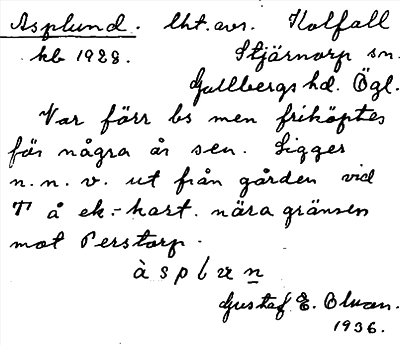 Asplund. lht. avs. Kolfall
kb 1928. Stjärnorp sn.
Gullbergs hd. Ögl.
Var förr bs men friköptes
för några år sen. Ligger
n.n.v. ut från gården vid
T å ek.-kart. nära gränsen
mot Perstorp.
à s p l u n
Gustaf E. Olson.
1936.